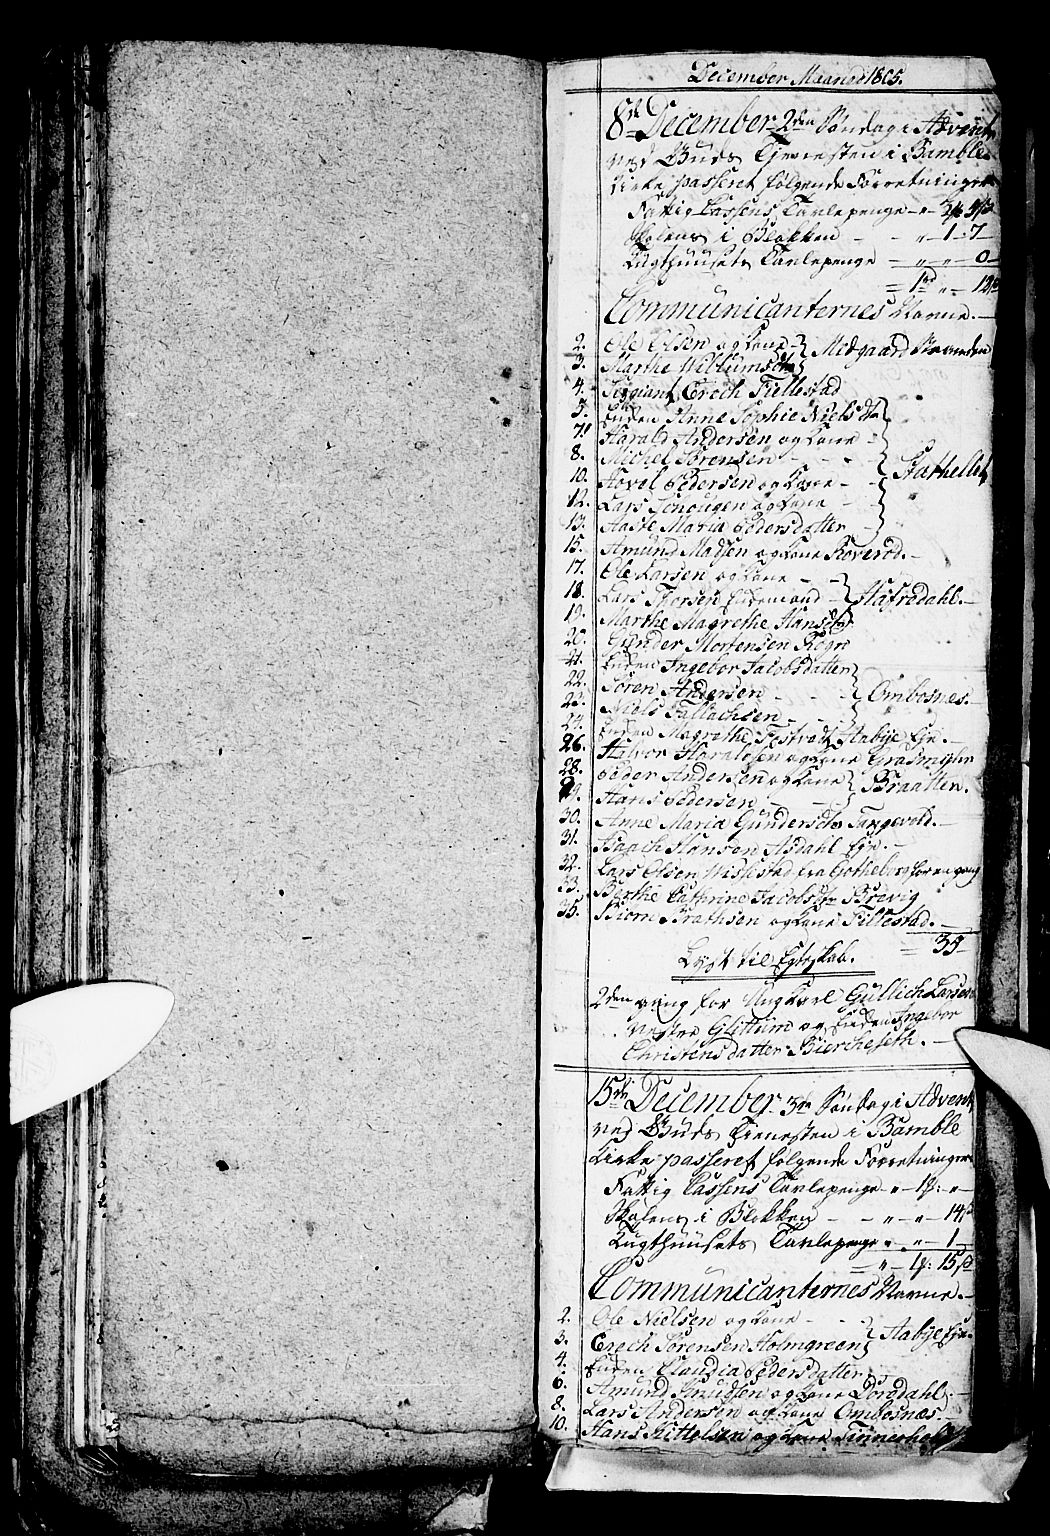 December Maaned 1805.
8de December 2den Søndag i Advent
ved Guds Tienesten i Bamble
Kirke passeret følgende Forretninger
Fattig Cassens Tavlepenge
Skolens i Blokken - - „ - 1 - 7
Tugthuusets Tavlepenge - „ „ - 0 -
= 1rd „ - 12s
Communicanternes Navne. -
2. Ole Olsen og Kone - } Midgaard Stranden
3. Marthe Willumsdtr
4. Sergiant Erich Tillestad
5. Enken Anne Sophie Nielsdtr
7. Harald Andersen og Kone -
8. Michel Sørensen - - - - Stathellet
10. Hovel Pedersen og Kone -
12. Lars og Kone -
13. Aaste Maria Pedersdatter -
15. Amund Madsen og Kone Roverød. -
17. Ole Larsen og Kone - -
18. Lars Thorsen Enkemand - } Hafrødahl. -
19. Marthe Magrethe Hansdtr
20. Gunder Mortensen Rogn
21. Enken Ingebor Jacobsdatter
22. Søren Andersen - - - - Ombosnes. -
23. Niels Fallachsen - -
24. Enken Magrethe Aabye Eje. -
26. Halvor Haraldsen og Kone Grasmyhr
28. Peder Andersen og Kone } Braatten.
29. Hans Pedersen - - -
30. Anne Maria Gundersdtr Tangevold. -
31. Isaach Hansen Asdahl Eje. -
32. Lars Olsen fra Gotheborg for en gang
33. Berthe Cathrine Jacobsdtr Brevig
35. Biørn Brathsen og Kone Tillestad. -
= 35
Lyst til Egteskab.
2den gang for Ungkarl Gullich Larsen
vestre Glittum og Enken Ingebor
Christensdatter Biercheseth. -
15de December 3die Søndag i Advent
ved Guds Tienesten i Bamble
Kirke passeret følgende Forretninger
Fattig Cassens Tavlepenge - „ - 1f: „ -
Skolens i Blokken - - „ - „ - 14s
Tugthuusets Tavlepenge „ - „ - 1 -
= „ - 1f: 15s
Communicanternes Navne. -
2. Ole Nielsen og Kone - - - } Aabye Eje. -
3. Erech Sørensen Holmgreen
4. Enken Claudia Pedersdatter
6. Amund Knudsen og Kone Dørdahl. -
8. Lars Andersen og Kone Ombosnæs. -
10. Hans Kittelsen og Kone